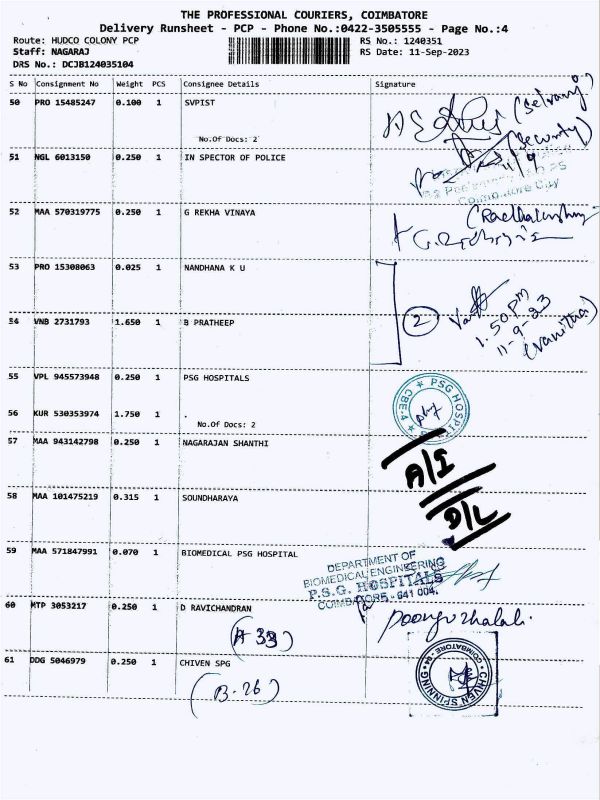 THE PROFESSIONAL COURIERS, COIMBATORE
Delivery Runsheet - PCP - Phone No.:0422-3505555 - Page No.:4
Route: HUDCO COLONY PCP RS No.: 1240351
Staff: NAGARAJ RS Date: 11-Sep-2023
DRS No.: DCJB124035104
S No Consignment No Weight PCS Consignee Details Signature
50 PRO 15485247 0.100 1 SVPIST
(Selvaraj)
No.Of Docs: 2
(Security)
11/9
51 NGL 6013150 0.250 1 IN SPECTOR OF POLICE
Coimbatore City
52 MAA 570319775 0.250 1 G REKHA VINAYA
53 PRO 15308063 0.025 1 NANDHANA K U
54 VNB 2731793 1.650 1 B PRATHEEP
2
1.50 PM
11-9-23
(Vanitha)
55 VPL 945573948 0.250 1 PSG HOSPITALS
PSG HOSPITALS
CBE-4
56 KUR 530353974 1.750 1 .
No.Of Docs: 2
57 MAA 943142798 0.250 1 NAGARAJAN SHANTHI
A/I
58 MAA 101475219 0.315 1 SOUNDHARAYA
D/L
59 MAA 571847991 0.070 1 BIOMEDICAL PSG HOSPITAL
DEPARTMENT OF
BIOMEDICAL ENGINEERING
P.S.G. HOSPITALS
COIMBATORE - 641 004.
60 MTP 3053217 0.250 1 D RAVICHANDRAN
(A 33)
Poonguzhalali
61 DDG 5046979 0.250 1 CHIVEN SPG
(B-26)
CHIVEN SPINNING
COIMBATORE-04